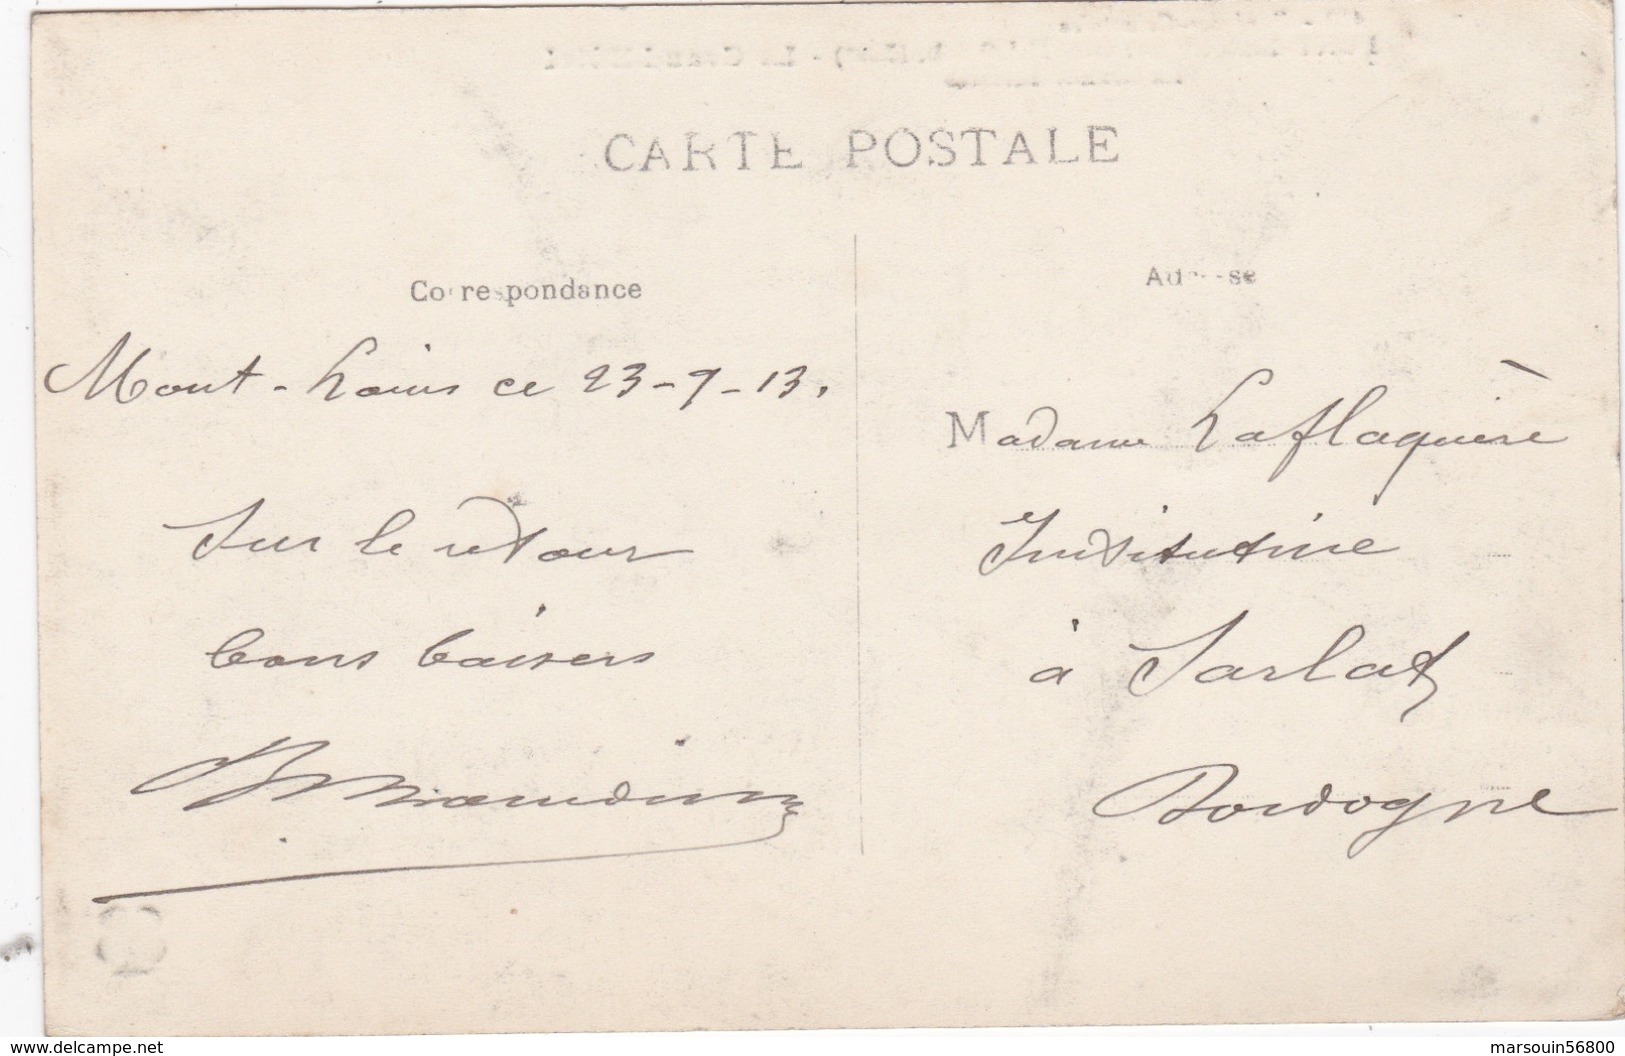 CARTE POSTALE
Correspondance
Adresse
Mont-Louis ce 23-9-13.
Sur le retour
bons baisers
Madame Laflaquière
Institutrice
à Sarlat
Dordogne
www.delcampe.net
marsouin56800